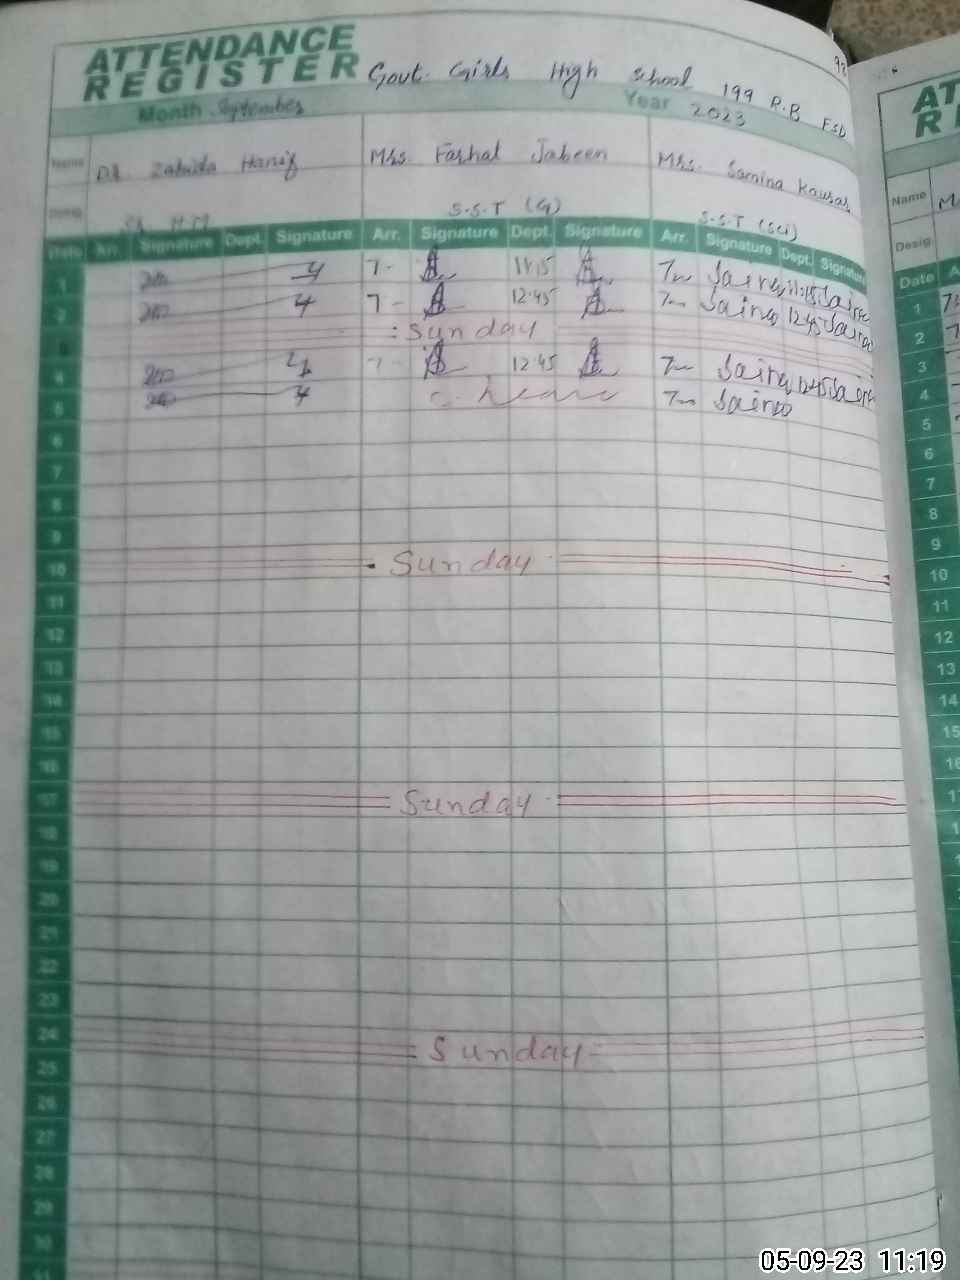 ATTENDANCE
REGISTER
Govt. Girls High School 199 R.B FSD
Month September Year 2023
Name Zahida Hanif Mrs. Farhat Jabeen Mrs. Samina Kausar
Desig. S.S.T (G) S.S.T (Sci)
Date Arr. Signature Dept. Signature Arr. Signature Dept. Signature Arr. Signature Dept. Signature
1 7- 11:15 11:15
2 7- 12:45 12:45
3 Sunday
4 7- 12:45 12:45
5
6
7
8
9
10 Sunday
11
12
13
14
15
16
17 Sunday
18
19
20
21
22
23
24 Sunday
25
26
27
28
29
30
31
AT
R
Name M
Desig
Date A
1
2
3
4
5
6
7
8
9
10
11
12
13
14
15
16
05-09-23 11:19